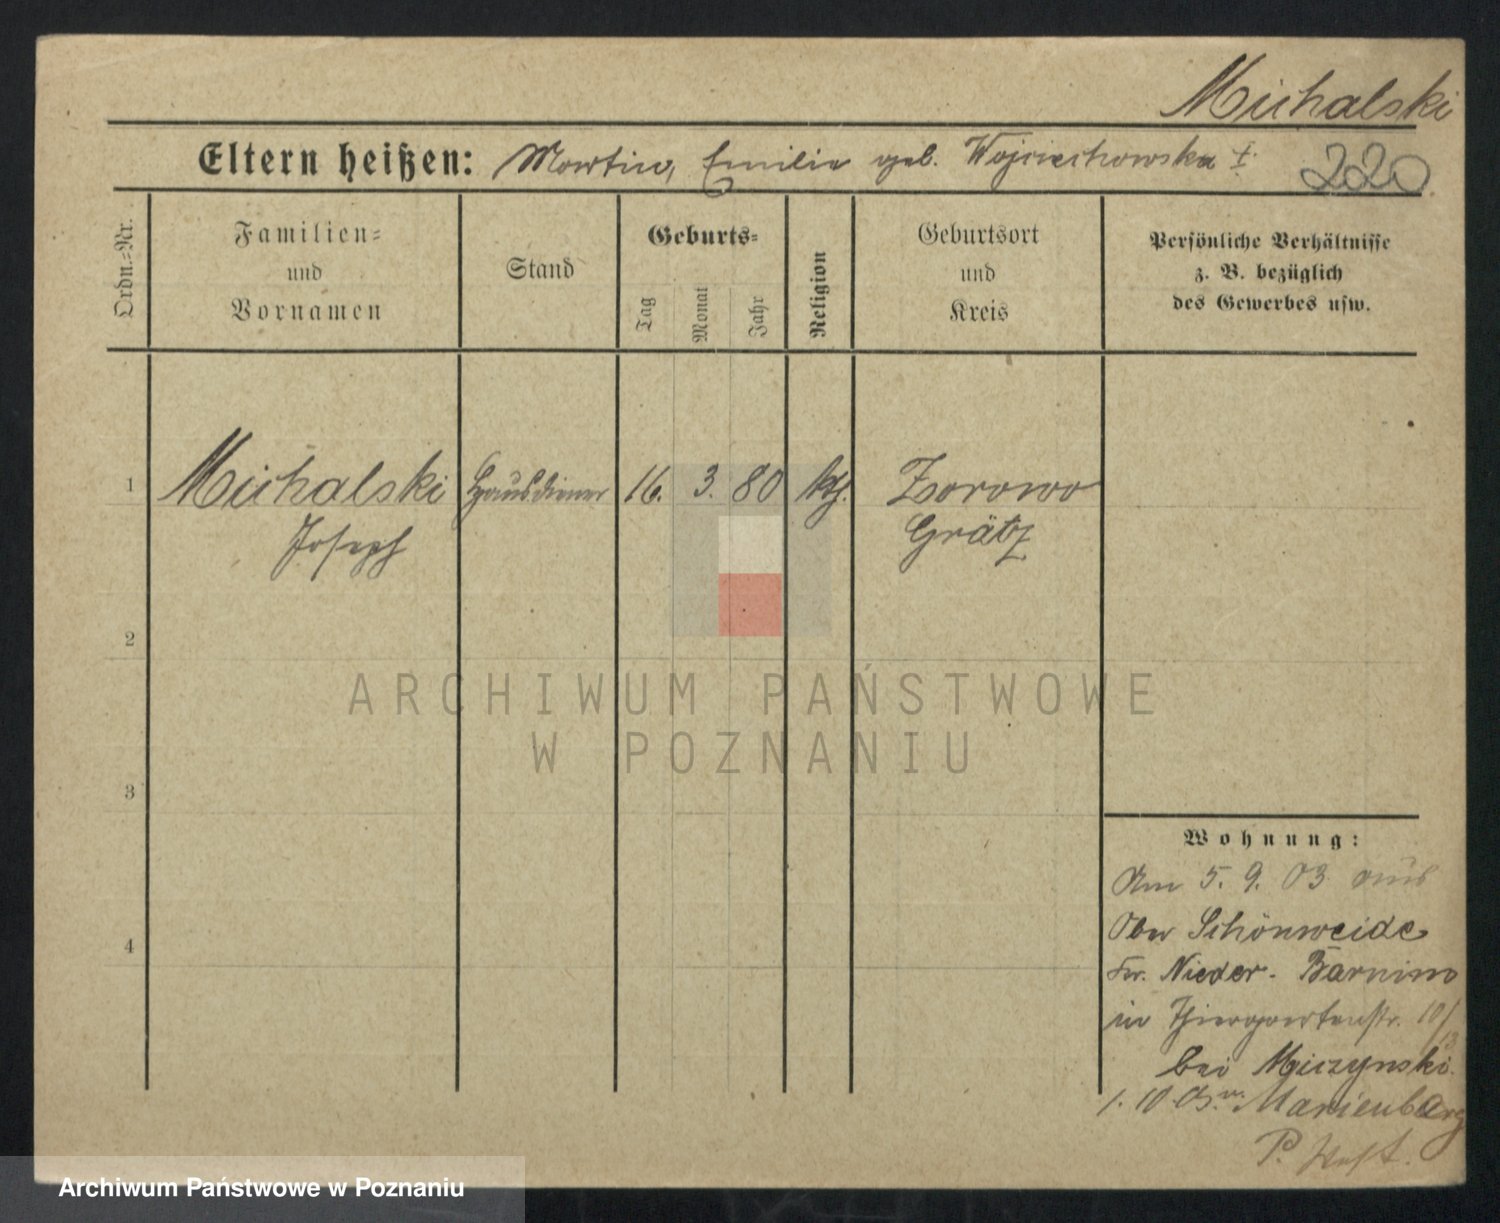 Michalski
Eltern heißen: Martin, Emilie geb. Wojciechowska †.
220
Ordn.=Nr.
Familien=
und
Vornamen
Stand
Geburts=
Tag
Monat
Jahr
Religion
Geburtsort
und
Kreis
Persönliche Verhältnisse
z. B. bezüglich
des Gewerbes usw.
1
Michalski
Joseph
Hausdiener
16.
3.
80
kth.
Zborowo
Grätz
2
3
4
Wohnung:
Am 5. 9. 03 aus
Ober Schönweide
Kr. Nieder-Barnim
in Thiergartenstr. 10/
bei
1. 10. 03 n. Marienberg
P. West.
ARCHIWUM PAŃSTWOWE
W POZNANIU
Archiwum Państwowe w Poznaniu